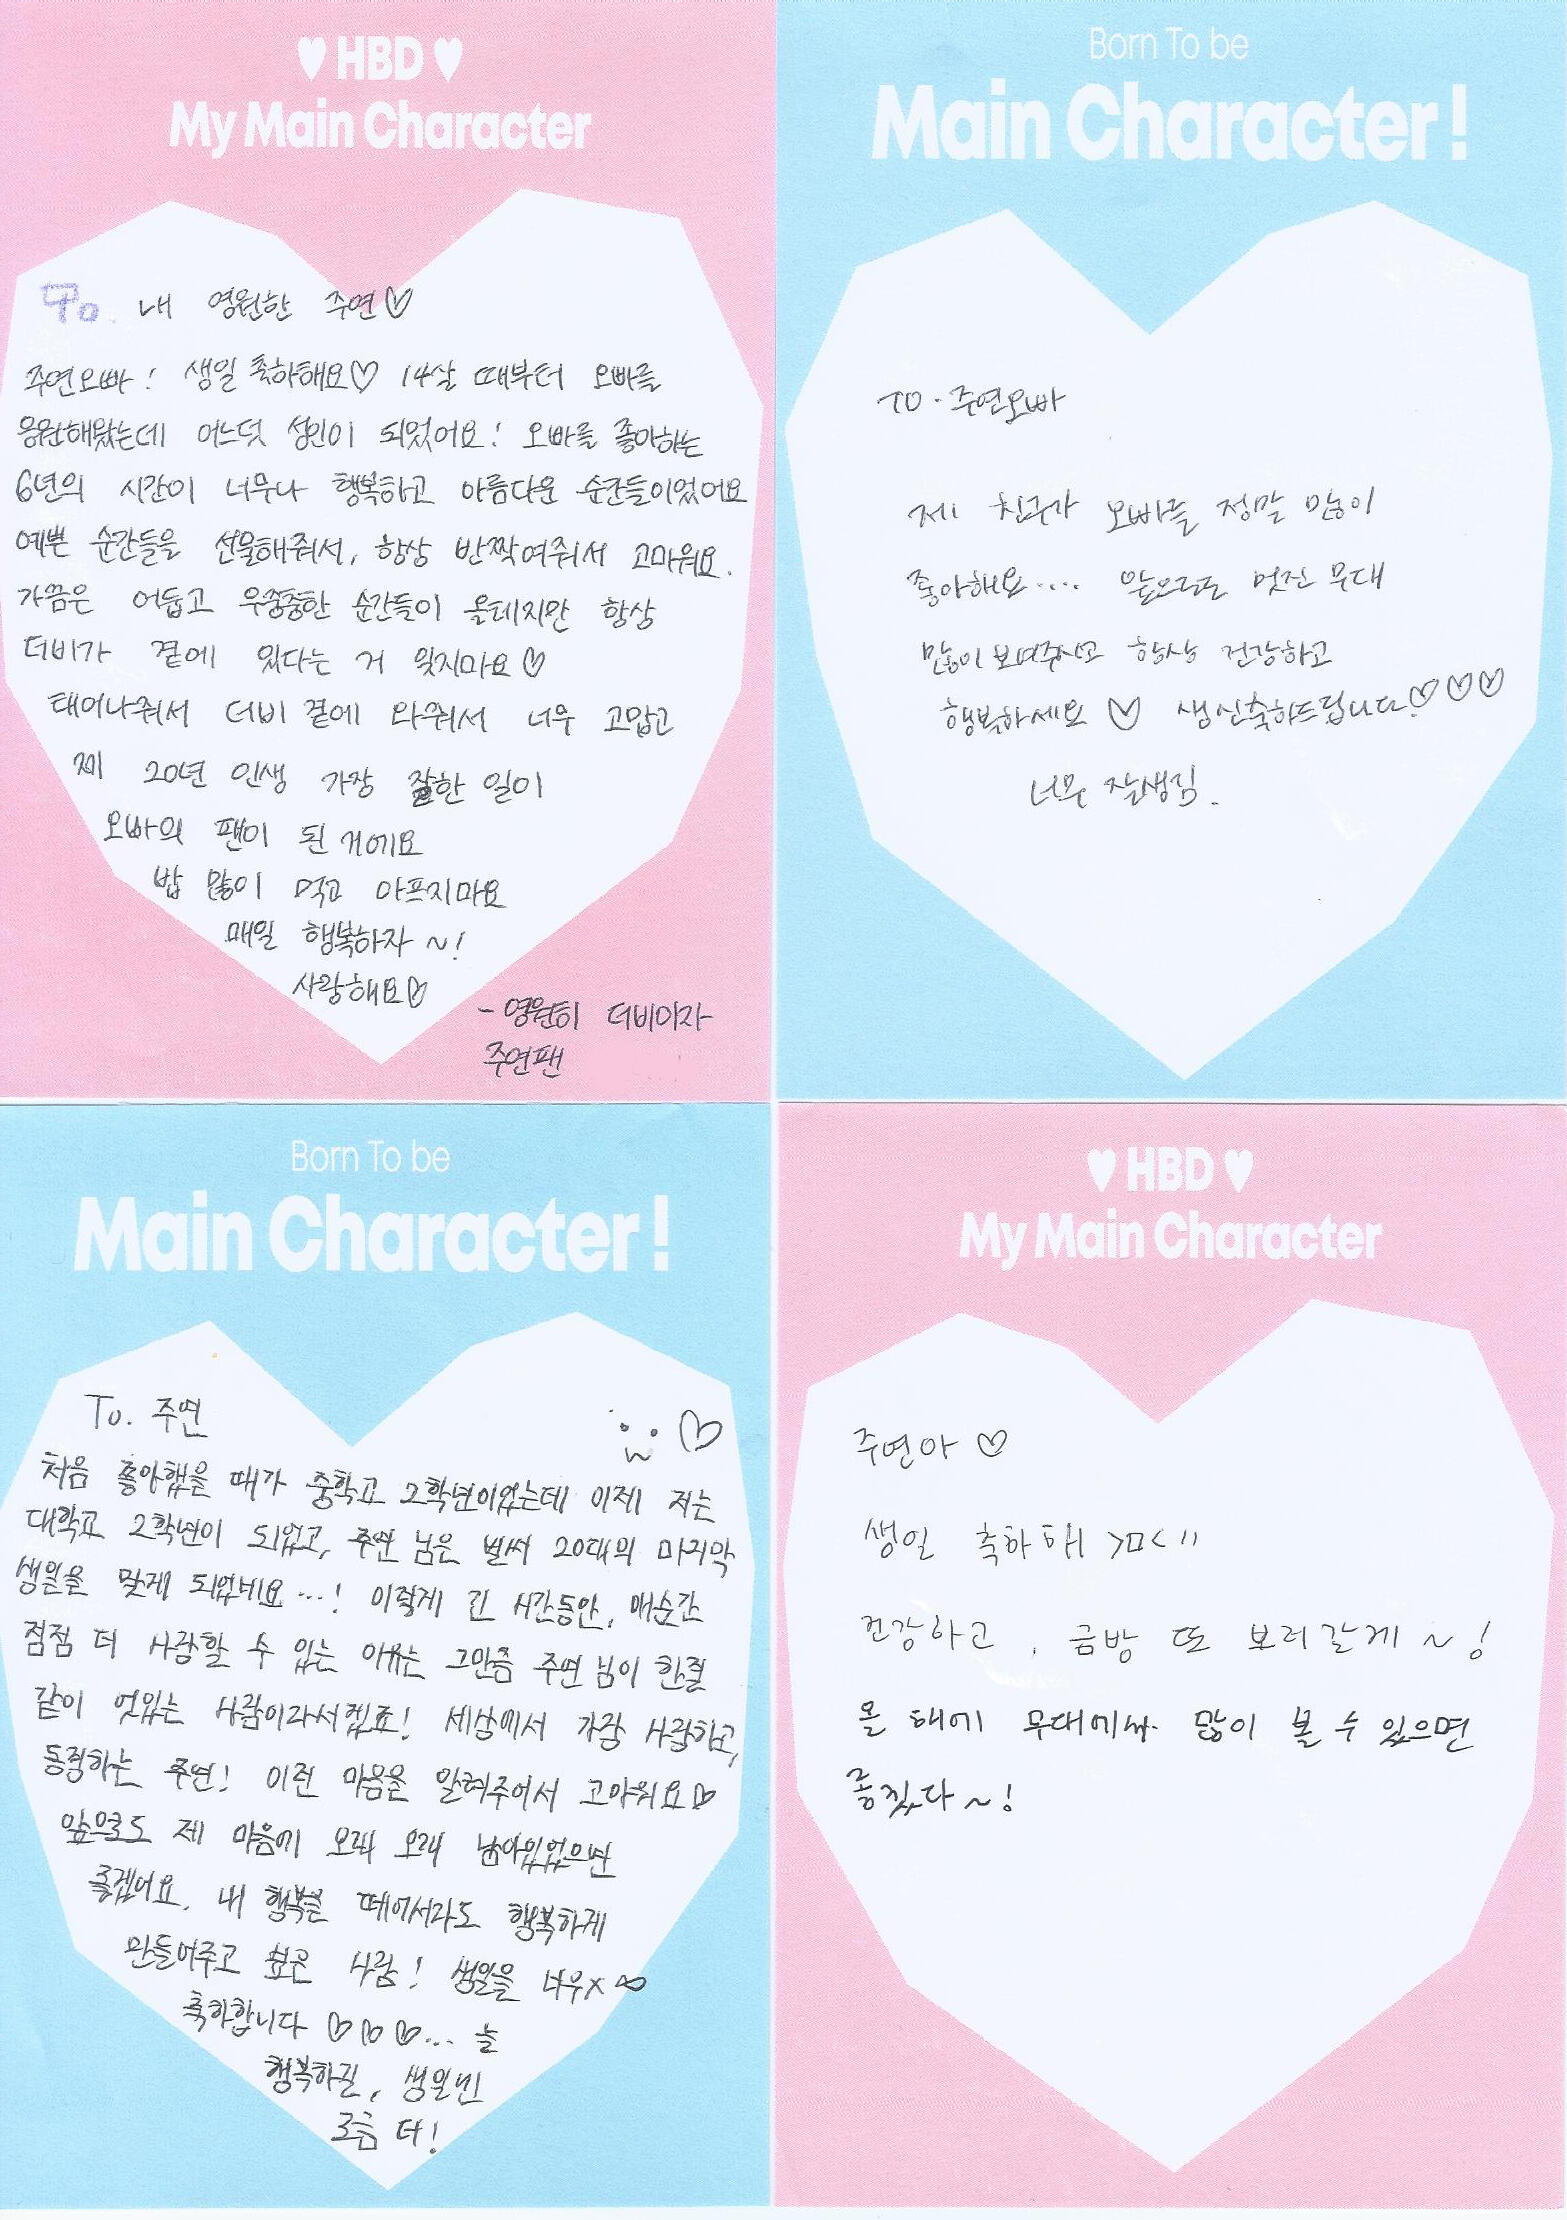 ♥ HBD ♥
My Main Character
To. 내 영원한 주연♡
주연오빠! 생일 축하해요♡ 14살 때부터 오빠를
응원해왔는데 어느덧 성인이 되었어요! 오빠를 좋아하는
6년의 시간이 너무나 행복하고 아름다운 순간들이었어요
예쁜 순간들을 선물해줘서, 항상 반짝여줘서 고마워요.
가끔은 어둡고 우중충한 순간들이 올테지만 항상
더비가 곁에 있다는 거 잊지마요♡
태어나줘서 더비 곁에 와줘서 너무 고맙고
제 20년 인생 가장 잘한 일이
오빠의 팬이 된 거에요
밥 많이 먹고 아프지마요
매일 행복하자 ~!
사랑해요♡
- 영원히 더비이자
주연팬
Born To be
Main Character!
TO. 주연오빠
제 친구가 오빠를 정말 많이
좋아해요.... 앞으로도 멋진 무대
많이 보여주시고 항상 건강하고
행복하세요 ♡ 생신축하드립니다♡♡♡
너무 잘생김.
Born To be
Main Character!
To. 주연
처음 좋아했을 때가 중학교 2학년이었는데 이제 저는
대학교 2학년이 되었고, 주연 님은 벌써 20대의 마지막
생일을 맞게 되었네요...! 이렇게 긴 시간동안, 매순간
점점 더 사랑할 수 있는 이유는 그만큼 주연 님이 한결
같이 멋있는 사람이라서겠죠! 세상에서 가장 사랑하고,
동경하는 주연! 이런 마음을 알려주어서 고마워요♡
앞으로도 제 마음에 오래 오래 남아있었으면
좋겠어요. 내 행복을 떼어서라도 행복하게
만들어주고 싶은 사람! 생일을 너무x∞
축하합니다 ♡♡♡... 늘
행복하길, 생일엔
조금 더!
♥ HBD ♥
My Main Character
주연아 ♡
생일 축하해 >ㅁ<"
건강하고, 금방 또 보러갈게 ~!
올 해에 무대에서 많이 볼 수 있으면
좋겠다~!